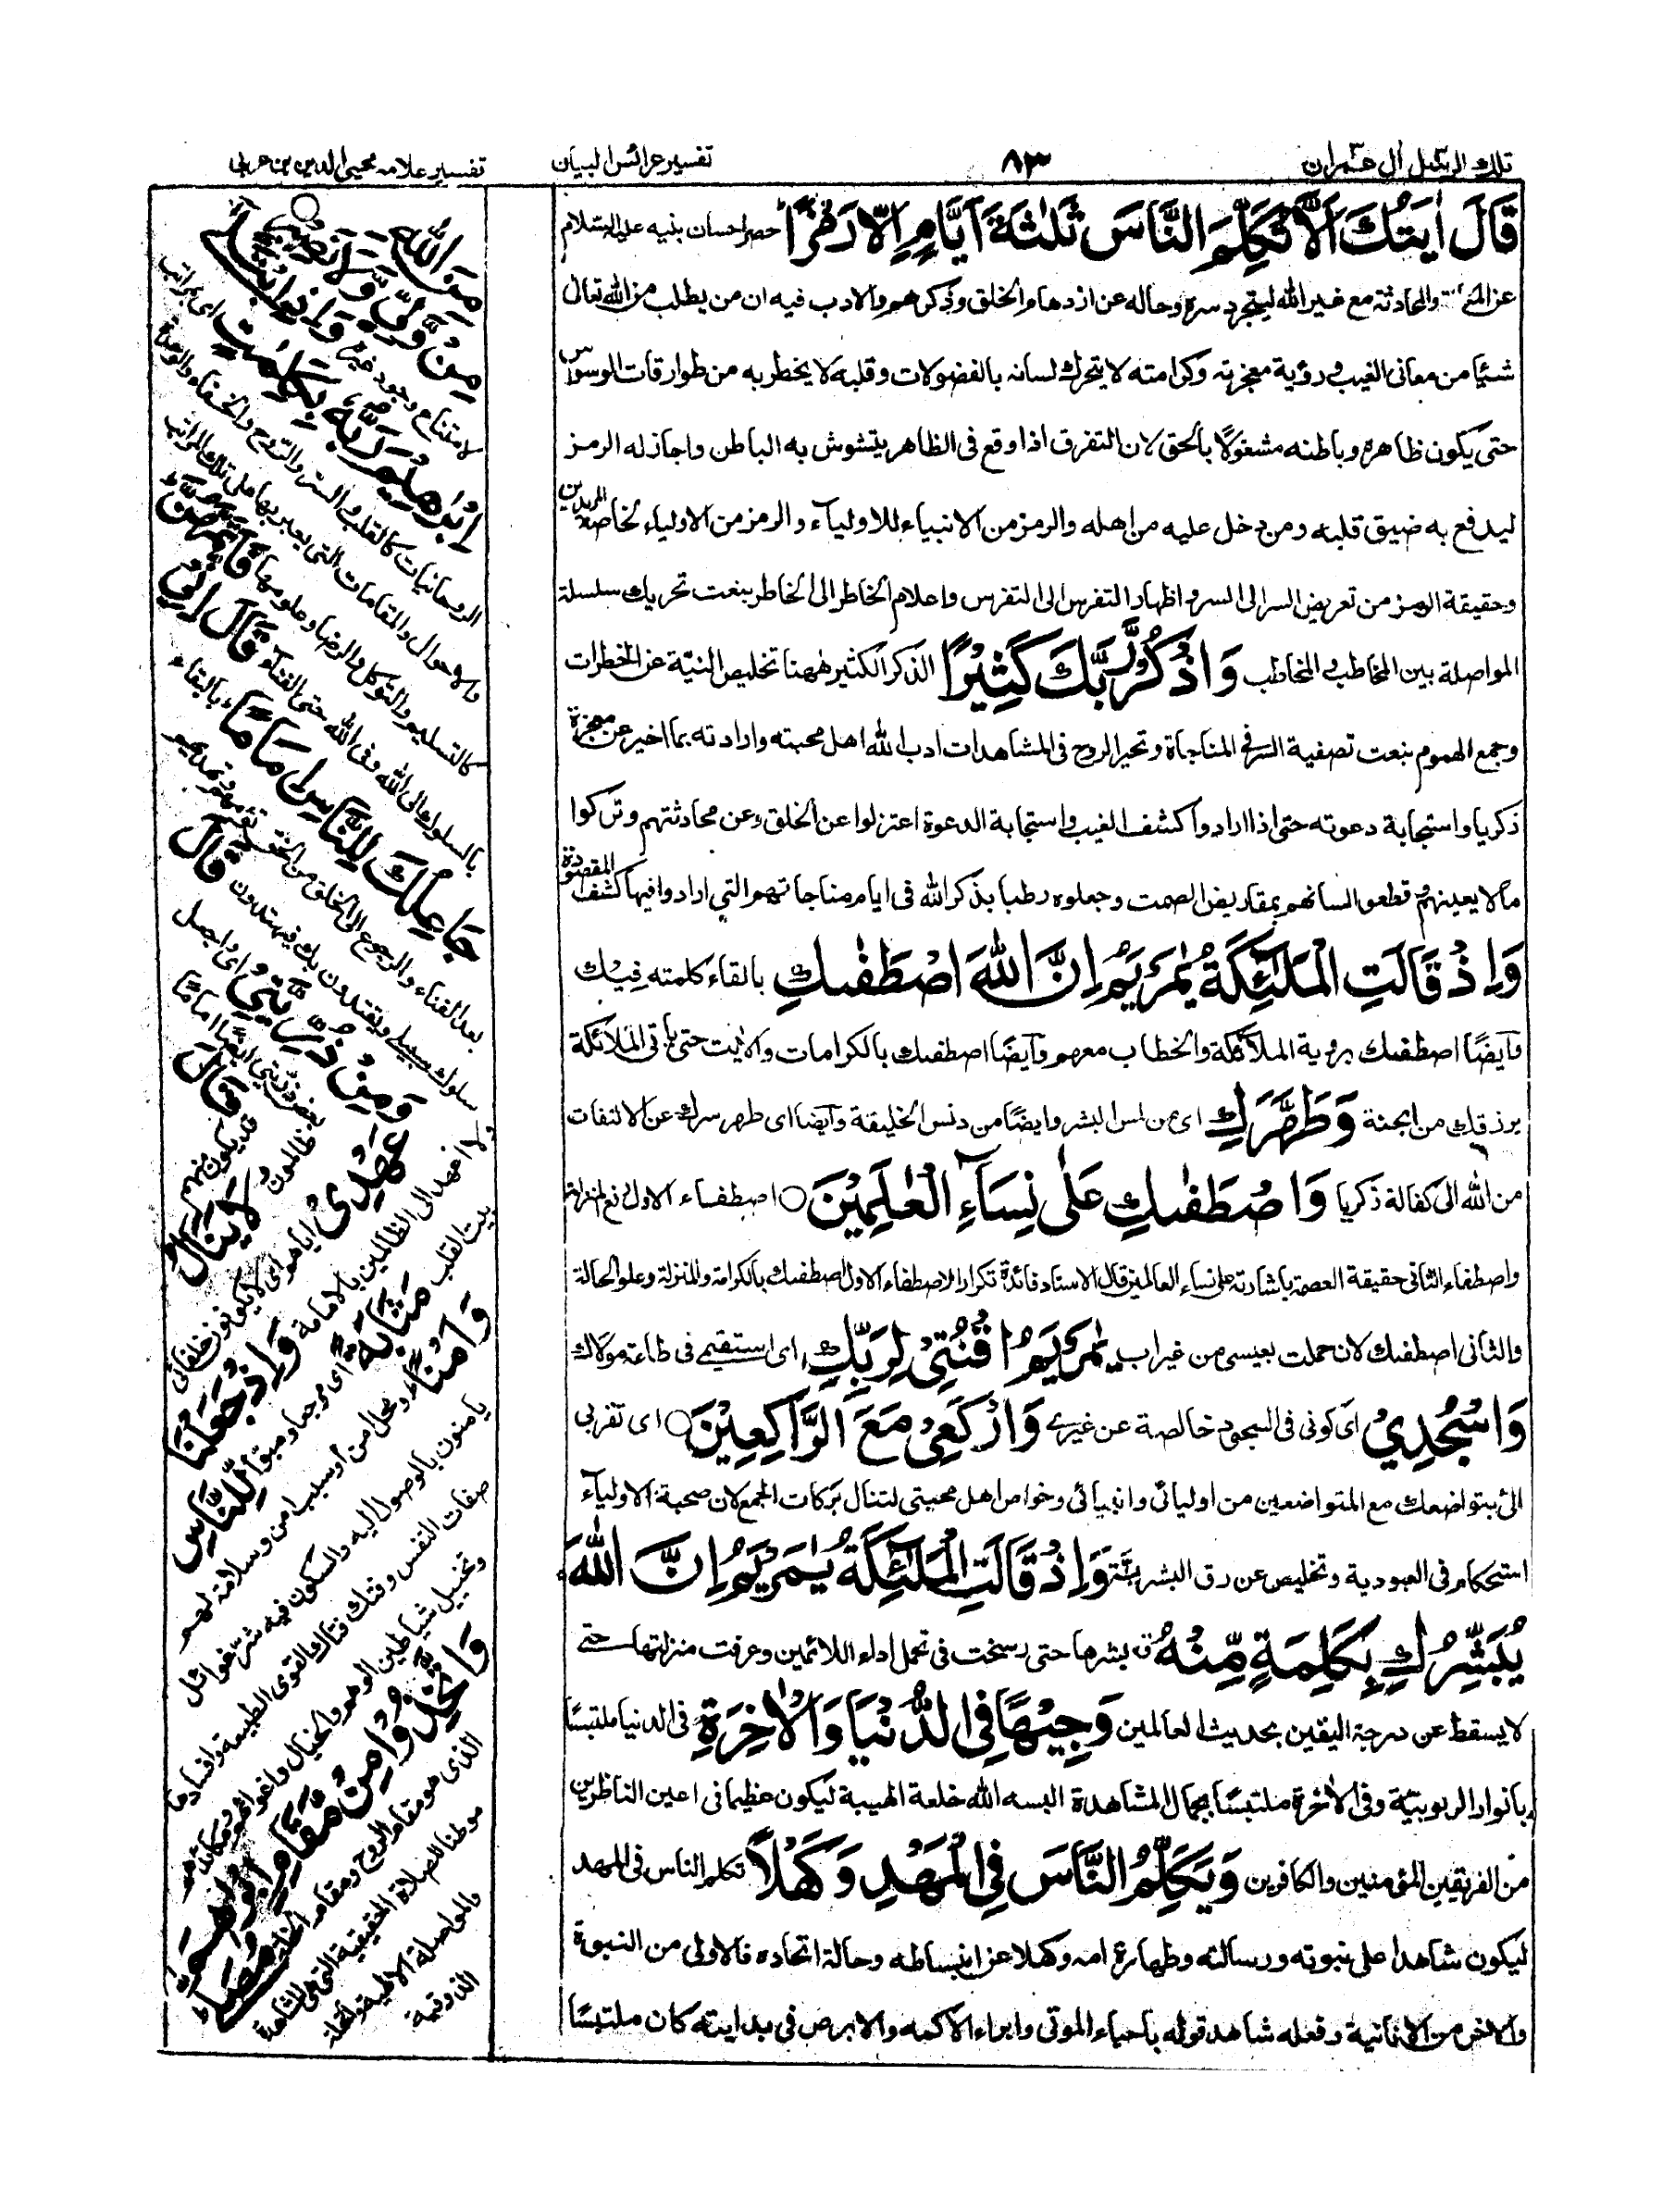 تلك الرسل ال عمران
٨٣
تفسير عرائس البيان
تفسير علامه محيى الدين بن عربى
قَالَ اٰيَتُكَ اَلَّا تُكَلِّمَ النَّاسَ ثَلٰثَةَ اَيَّامٍ اِلَّا رَمْزًا حصر لسان نبيه عليه السلام
والمحادثة مع غير الله ليتجرد سره وحاله عن ازدحام الخلق وذكرهم والادب فيه ان من يطلب من الله تعالى
شيئا من معانى الغيب ورؤية معجزته وكرامته لا يتحرك لسانه بالفضولات وقلبه لا يخطر به من طوارقات الوسوس
حتى يكون ظاهره وباطنه مشغولا بالحق لان التفرق اذا وقع فى الظاهر يتشوش به الباطن واجاز له الرمز
ليدفع به ضيق قلبه ومن دخل عليه من اهله والرمز من الانبياء للاولياء والرمز من الاولياء لخاصة المريدين
وحقيقة الرمز من تعريض السر الى السر واظهار التفرس الى التفرس واعلام الخاطر الى الخاطر بنعت تحريك سلسلة
المواصلة بين المخاطب والمخاطب وَاذْكُرْ رَّبَّكَ كَثِيْرًا الذكر الكثير ههنا تخليص النية عن الخطرات
وجمع الهموم بنعت تصفية السر فى المناجاة وتحير الروح فى المشاهدات ادب الله اهل محبته وارادته بما اخبر عن معجزة
ذكريا واستجابة دعوته حتى اذا ارادوا كشف الغيب واستجابة الدعوة اعتزلوا عن الخلق وعن محادثتهم وتركوا
ما لا يعينهم وقطعوا لسانهم بمقاريض الصمت وجعلوه رطبا بذكر الله فى ايام مناجاتهم التى ارادوا فيها كشف المقصودة
وَاِذْ قَالَتِ الْمَلٰٓئِكَةُ يٰمَرْيَمُ اِنَّ اللّٰهَ اصْطَفٰىكِ بالقاء كلمته فيك
وايضًا اصطفىك برؤية الملائكة والخطاب معهم وايضًا اصطفىك بالكرامات والايت حتى ياتى الملائكة
برزقك من الجنة وَطَهَّرَكِ اى من لمس البشر وايضًا من دنس الخليقة وايضا اى طهر سرك عن الالتفات
من الله الى كفالة زكريا وَاصْطَفٰىكِ عَلٰى نِسَآءِ الْعٰلَمِيْنَ ○ اصطفاء الاول
واصطفاء الثانى حقيقة العصمة باشارته على نساء العالمين قال الاستاد فائدة تكرار الاصطفاء الاول اصطفىك بالكرامة والمنزلة وعلو الحالة
والثانى اصطفىك لان حملت بعيسى من غير اب يٰمَرْيَمُ اقْنُتِيْ لِرَبِّكِ اى استقيمى فى طاعة مولاك
وَاسْجُدِيْ اى كونى فى السجود خالصة عن غيرى وَارْكَعِيْ مَعَ الرَّاكِعِيْنَ ○ اى تقربى
الىّ بتواضعك مع المتواضعين من اوليائى وانبيائى وخواص اهل محبتى لتنال بركات الجمع لان صحبة الاولياء
استحكام فى العبودية وتخليص عن رق البشرية وَاِذْ قَالَتِ الْمَلٰٓئِكَةُ يٰمَرْيَمُ اِنَّ اللّٰهَ
يُبَشِّرُكِ بِكَلِمَةٍ مِّنْهُ بشرها حتى رسخت فى تحمل اداء اللائمين وعرفت منزلتها حتى
لا يسقط عن درجة اليقين بحديث العالمين وَجِيْهًا فِي الدُّنْيَا وَالْاٰخِرَةِ فى الدنيا ملتبسًا
بانوار الربوبيّة وفى الاٰخرة ملتبسًا بجمال المشاهدة البسه الله خلعة الهيبة ليكون عظيما فى اعين الناظرين
من الفريقين المؤمنين والكافرين وَيُكَلِّمُ النَّاسَ فِي الْمَهْدِ وَكَهْلًا تكلم الناس فى المهد
ليكون شاهدا على نبوته ورسالته وطهارة امه وكهلا عن انبساطه وحالة اتحاده فالاولى من النبوة
والاخر من الانانية وفعله شاهد قوله باحياء الموتى وابراء الاكمه والابرص فى بدايته كان ملتبسًا
مِنَ اللّٰهِ
مِنْ وَّلِيٍّ وَّلَا نَصِيْرٍ ○
لامتناع وجود غيره وَاِذِ ابْتَلٰٓى
اِبْرٰهٖمَ رَبُّهٗ بِكَلِمٰتٍ اى بمراتب
الروحانيات كالقلب والسر والروح والخفاء والوحدة
والاحوال والمقامات التى يعبر بها على تلك المراتب
كالتسليم والتوكل والرضا وعلومها فَاَتَمَّهُنَّ
بالسلوك الى الله وفى الله حتى الفناء قَالَ اِنِّيْ
جَاعِلُكَ لِلنَّاسِ اِمَامًا بالبقاء
بعد الفناء والرجوع الى الخلق من الحق
سلوك سبيلى ويقتدون بك فيهتدون قَالَ
وَمِنْ ذُرِّيَّتِيْ اى واجعل
بعض ذريتى ايضا اماما
قَالَ قد يكون منهم ظالمون لَا يَنَالُ
عَهْدِيْ اياهم اى لا يكونون خلفائى
ولا اعهد الى الظالمين بالامامة وَاِذْ جَعَلْنَا
بيت القلب مَثَابَةً اى مرجعا ومبوّأ لِّلنَّاسِ
وَاَمْنًا ومحل امن او سبب امن وسلامة لهم
يامنون بالوصول اليه والسكون فيه شر غوائل
صفات النفس وفتك فتاك القوى الطبيعة وافسادها
وتخييل شياطين الوهم والخيال واغوائهم ومكائدهم
وَاتَّخِذُوْا مِنْ مَّقَامِ اِبْرٰهٖمَ
الذى هو مقام الروح ومقام الخلة مُصَلًّى
موطنا للصلاة الحقيقية التى هى المشاهدة
والمواصلة الالهية والخلة
الذوقية